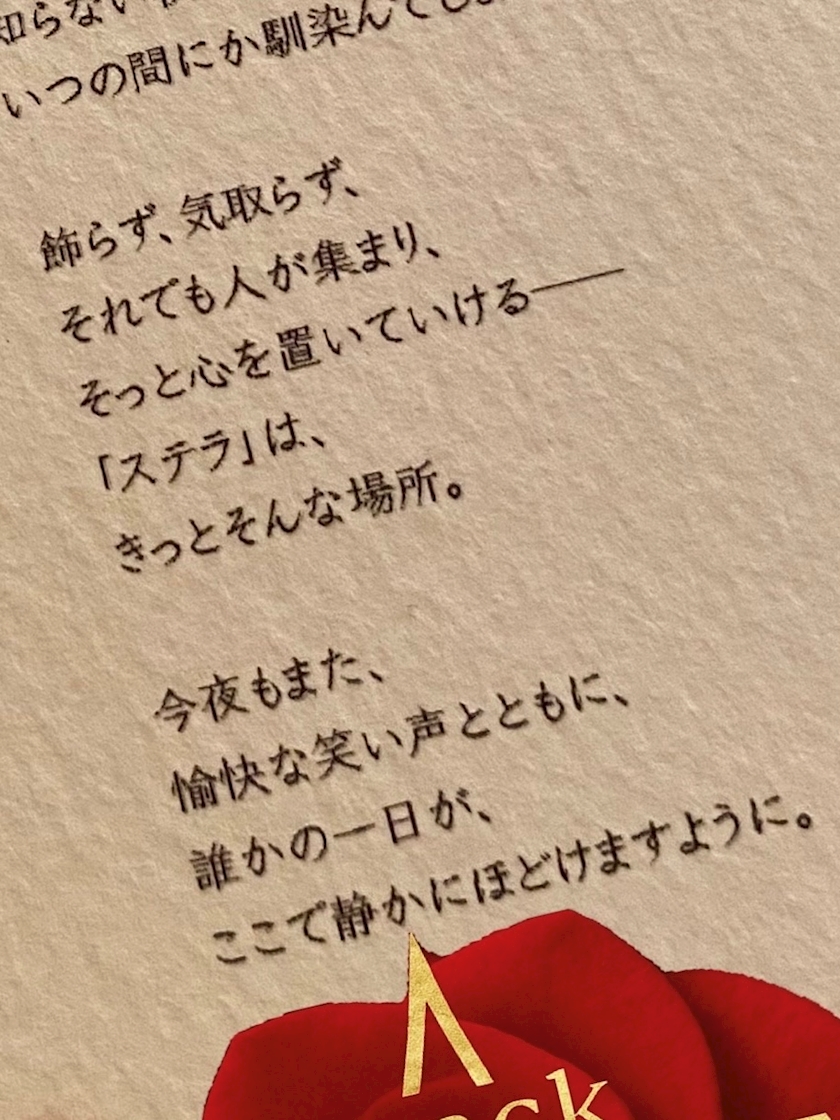 知らない
いつの間にか馴染んでし
飾らず、気取らず、
それでも人が集まり、
そっと心を置いていける――
「ステラ」は、
きっとそんな場所。
今夜もまた、
愉快な笑い声とともに、
誰かの一日が、
ここで静かにほどけますように。
ck